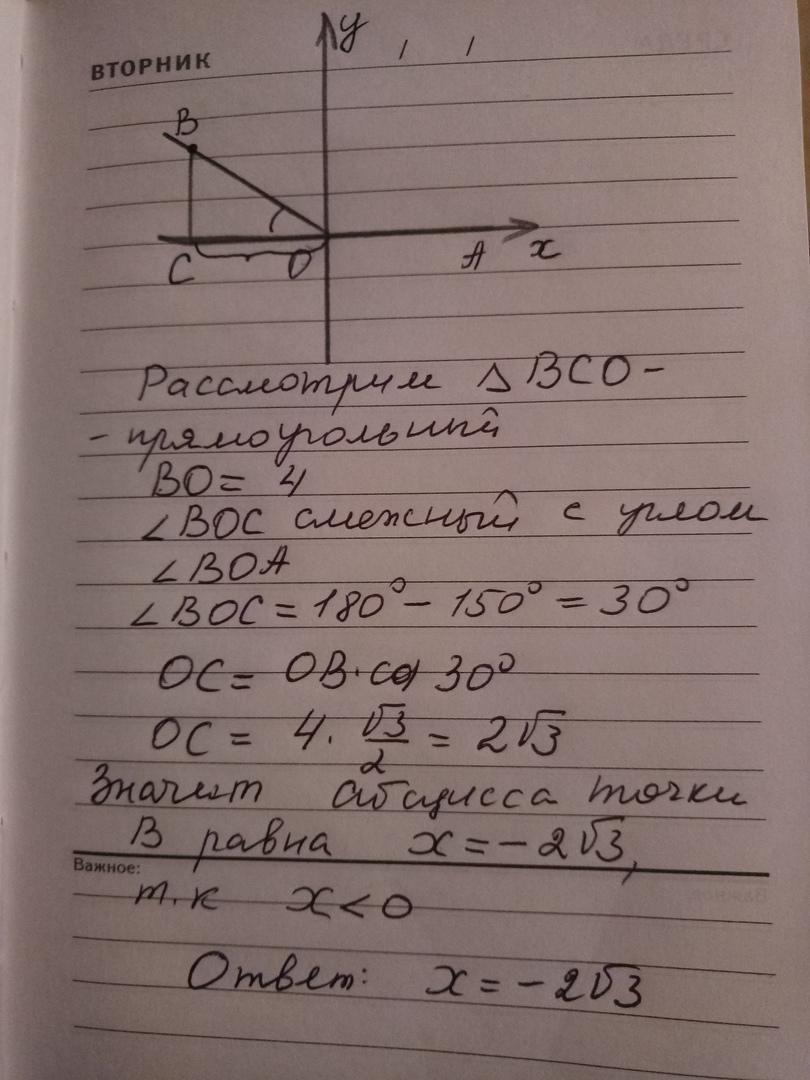 ВТОРНИК
y
B
C
O
A
x
Рассмотрим △BCO -
- прямоугольный
BO = 4
∠BOC смежный с углом
∠BOA
∠BOC = 180° - 150° = 30°
OC = OB · cos 30°
OC = 4 · √3/2 = 2√3
Значит абсцисса точки
B равна x = -2√3,
Важное:
т.к x < 0
Ответ: x = -2√3